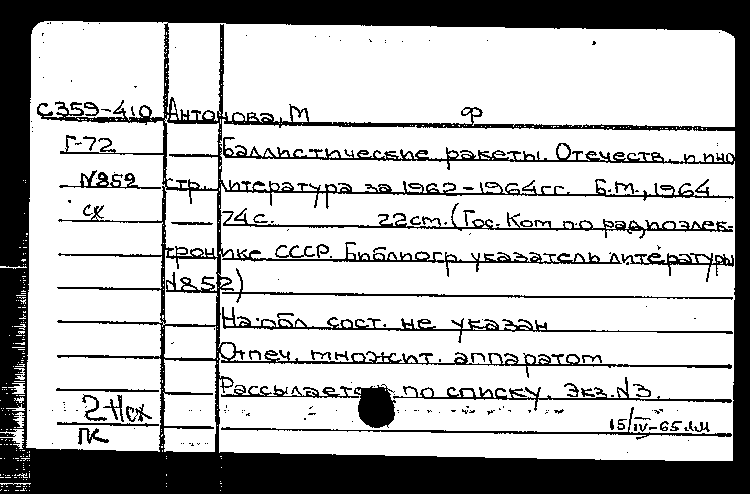 С359-410 Антонова, М Ф
Г-72 Баллистические ракеты. Отечеств. и ино
N852 стр. литература за 1962-1964гг. Б.М., 1964
сх 74с. 22см. (Гос. Ком по радиоэлек-
тронике СССР. Библиогр. указатель литературы
N852)
На обл. сост. не указан
Отпеч. множит. аппаратом
Рассылается по списку. Экз. N3.
2-Нсх
ПК 15/IV-65 ЛМ